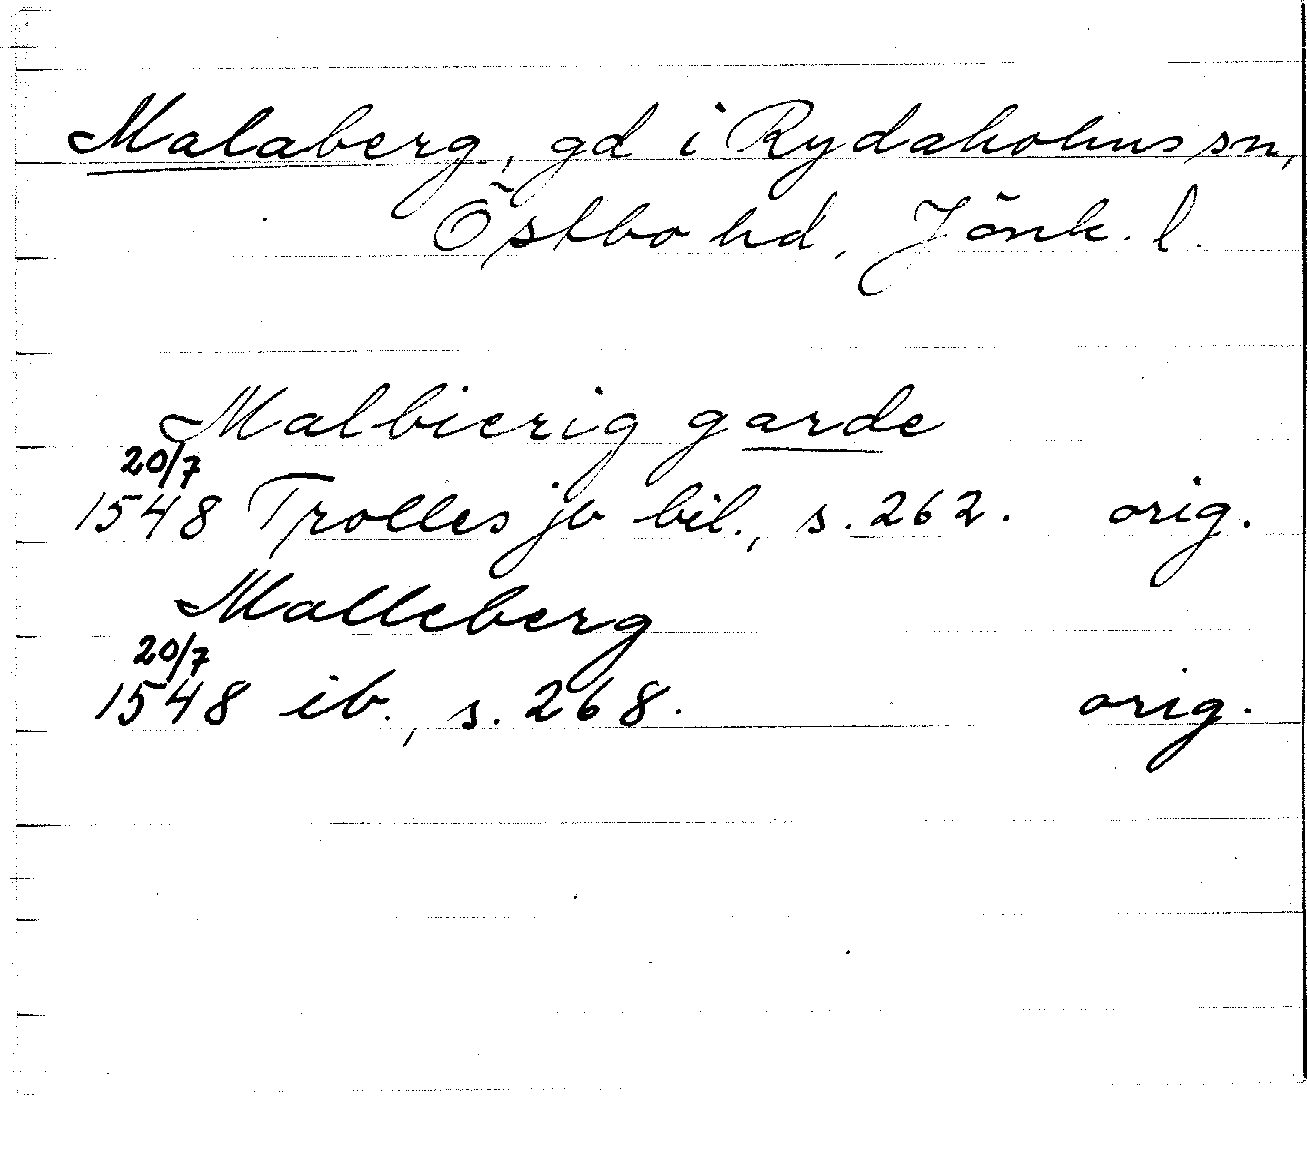 Malaberg, gd i Rydaholms sn,
Östbo hd, Jönk. l.
Malbierig garde
20/7
1548 Trolles jb bil., s. 262. orig.
Malleberg
20/7
1548 ib., s. 268. orig.